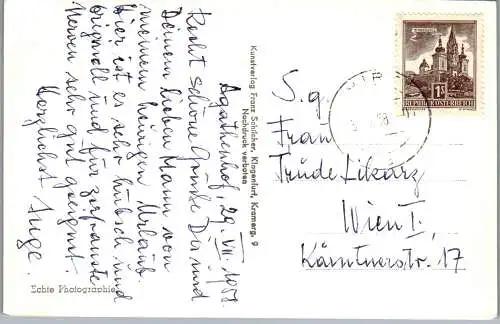 Agathenhof, 29. VII. 1958.
Recht schöne Grüße Dir und
Deinem lieben Mann von
meinem kurzen Urlaub.
Hier ist es sehr hübsch und
originell und für zerfranste
Nerven sehr gut geeignet.
Herzlichst Inge.
Echte Photographie
Kunstverlag Franz Schilcher, Klagenfurt, Kramerg. 9
Nachdruck verboten
REPUBLIK ÖSTERREICH
1S
S. g.
Frau
Trude Likarz
Wien I,
Kärntnerstr. 17